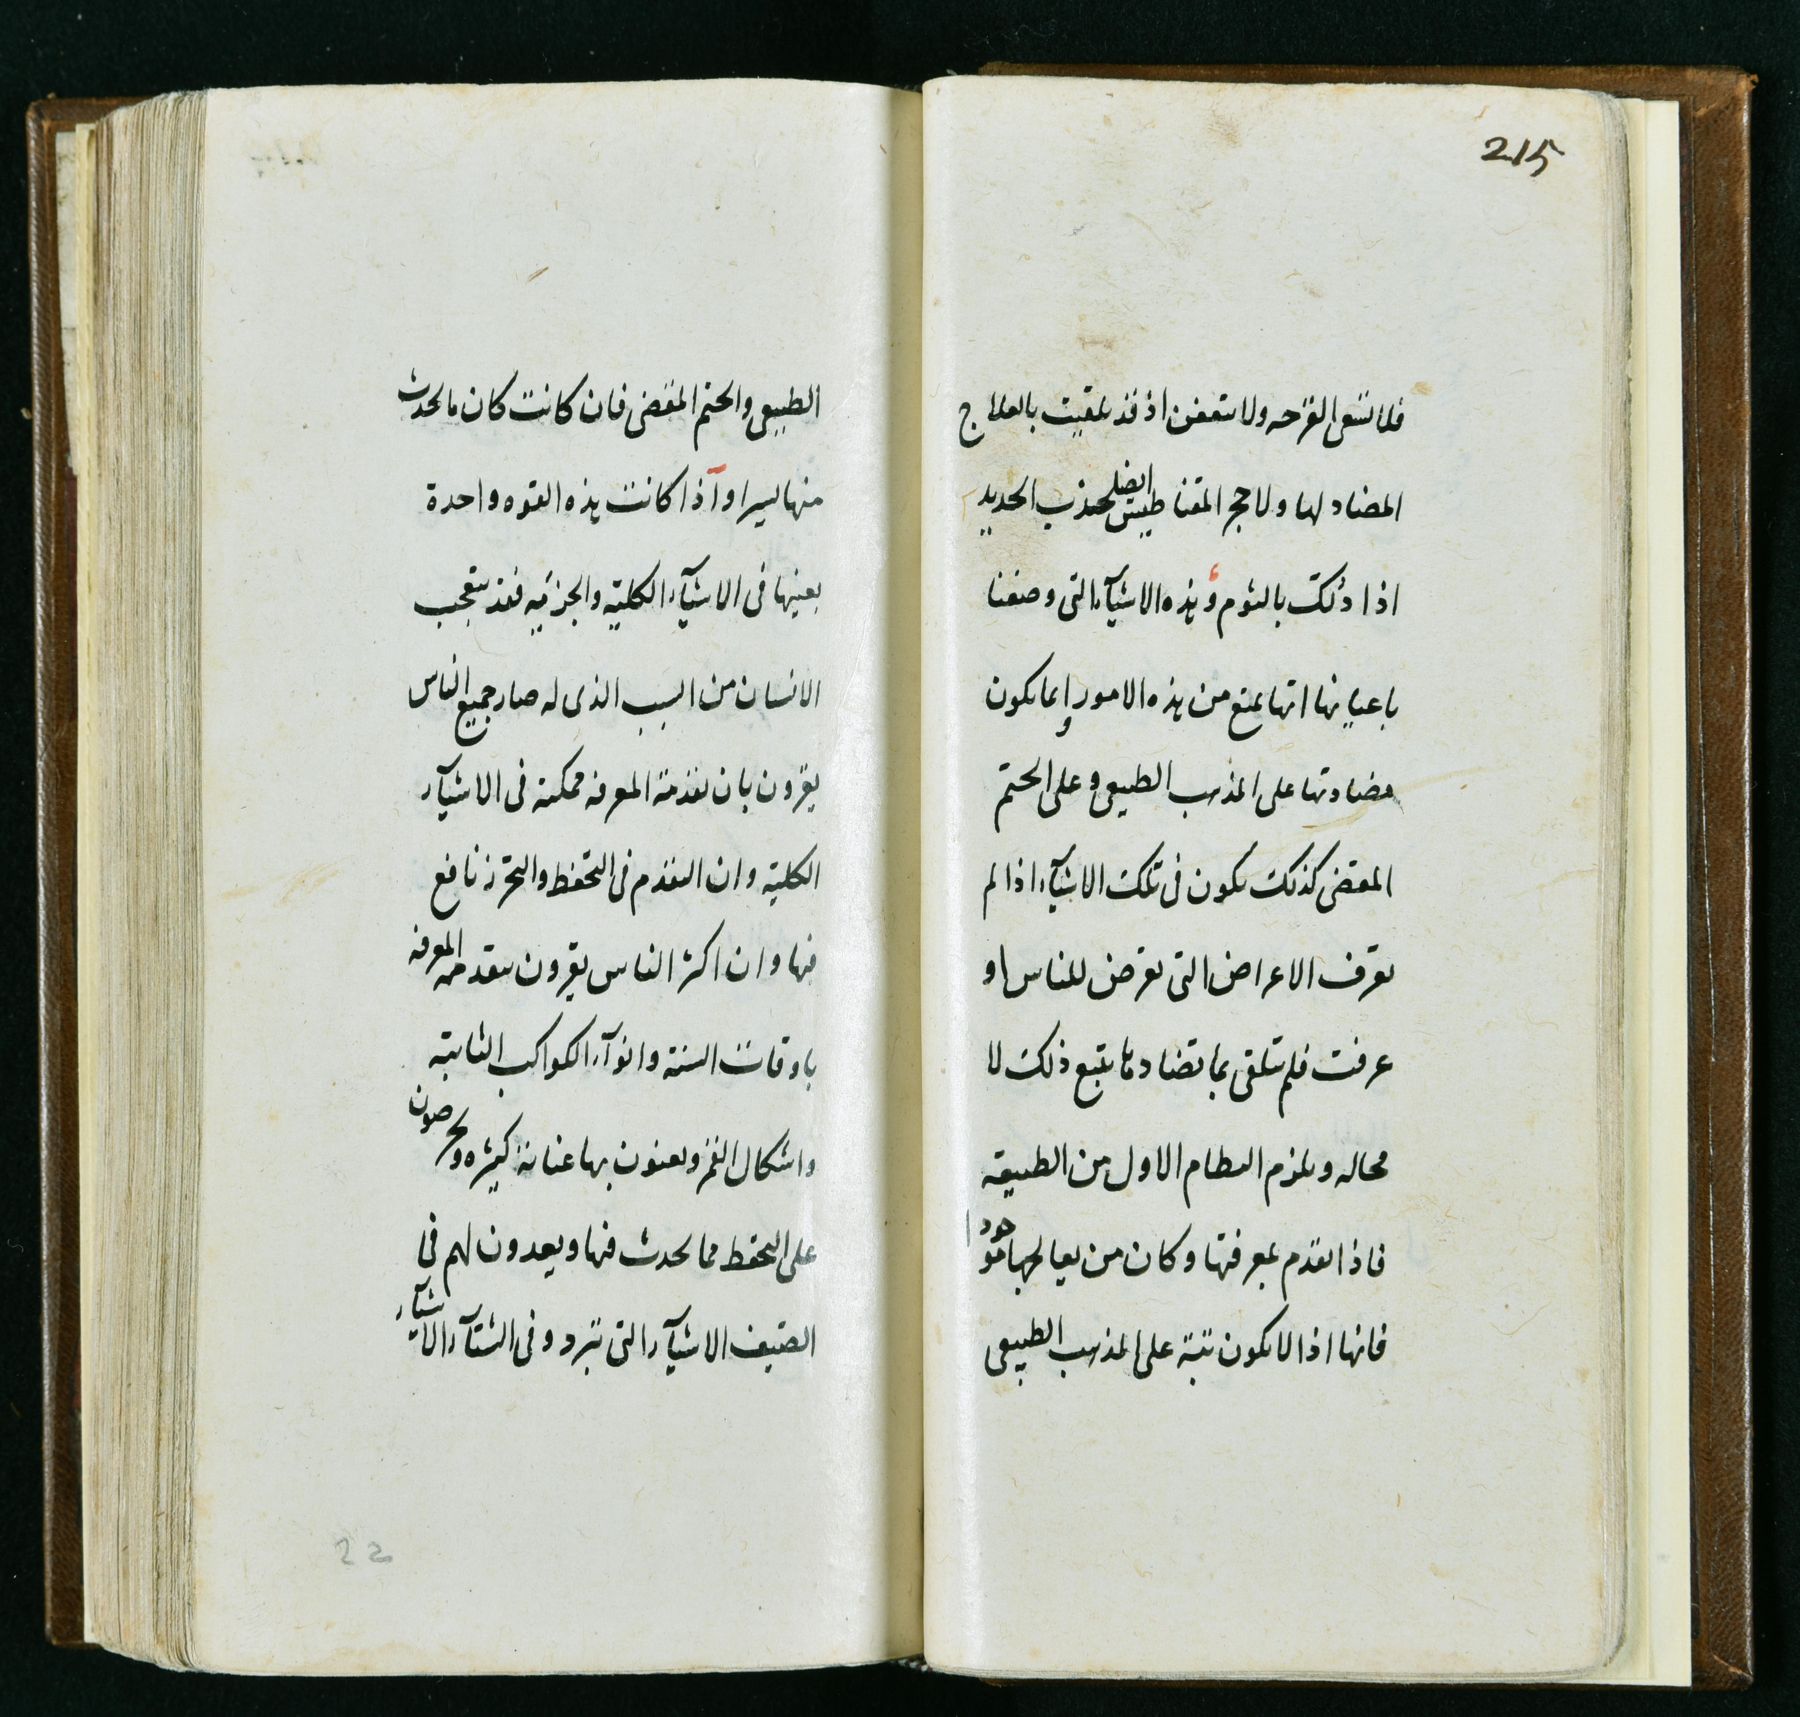 215
فلا تسعى القرحه ولا تتعفن اذ قد تلقيت بالعلاج
المضاد لها ولا حجر المقناطيس ايضا يجذب الحديد
اذا دلك بالثوم وهذه الاشيآء التى وصفنا
باعيانها انها تمنع من هذه الامور وانما يكون
مضادتها على المذهب الطبيعى وعلى الحتم
المقضى كذلك يكون فى تلك الاشيآء اذا لم
تعرف الاعراض التى تعرض للناس او
عرفت فلم تتلقى بما تضادها يتبع ذلك لا
محاله ويلزم النظام الاول من الطبيعة
فاذا تقدم بمعرفتها وكان من يعالجها موجودا
فانها اذا لا تكون تتبة على المذهب الطبيعى
الطبيعى والحتم المقضى فان كانت كان ما يحدث
منها يسيرا وآذا كانت هذه القوه واحدة
بعينها فى الاشيآء الكلية والجزئيه فقد يتعجب
الانسان من السبب الذى له صار جميع الناس
يقرون بان تقدمة المعرفه ممكنه فى الاشيآء
الكلية وان التقدم فى التحفظ والتحرز نافع
فيها وان اكثر الناس يقرون بتقدمه المعرفه
باوقات السنة وانوآء الكواكب الثابته
واشكال القمر ويعنون بها عناية كثيره ويحرصون
على التحفظ مما يحدث فيها ويعدون لهم فى
الصيف الاشيآء التى تبرد وفى الشتآء الاشيآء
22